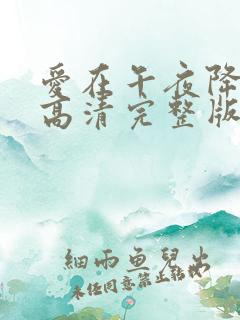 愛在午夜降
高清完整版
細雨魚兒出
未經同意禁止轉載